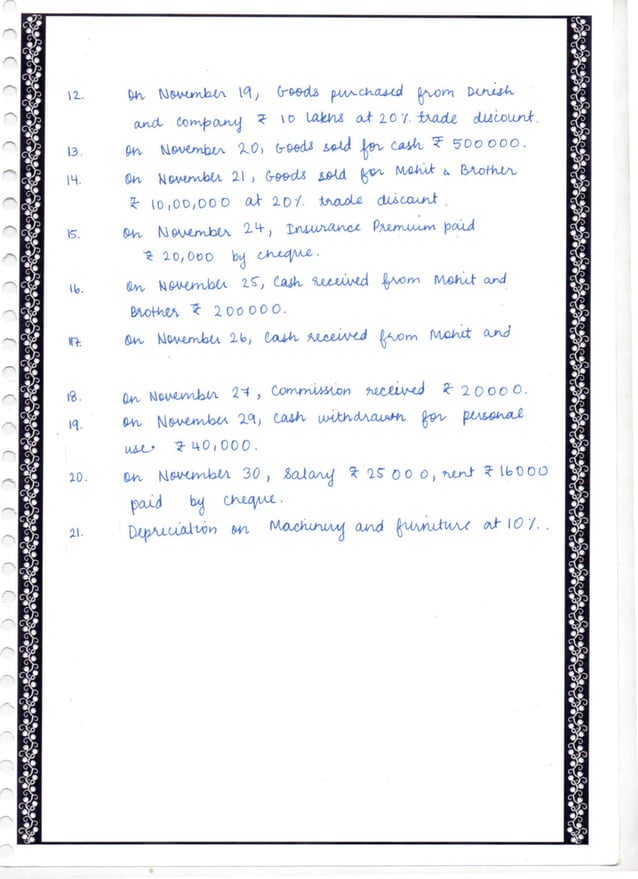 12. On November 19, Goods purchased from Dinesh
and company ₹ 10 lakhs at 20% trade discount.
13. On November 20, Goods sold for cash ₹ 500000.
14. On November 21, Goods sold for Mohit & Brother
₹ 10,00,000 at 20% trade discount.
15. On November 24, Insurance Premium paid
₹ 20,000 by cheque.
16. On November 25, Cash received from Mohit and
Brother ₹ 200000.
17. On November 26, Cash received from Mohit and
18. On November 27, Commission received ₹ 20000.
19. On November 29, Cash withdrawn for personal
use ₹ 40,000.
20. On November 30, Salary ₹ 25000, rent ₹ 16000
paid by cheque.
21. Depreciation on Machinery and furniture at 10%..